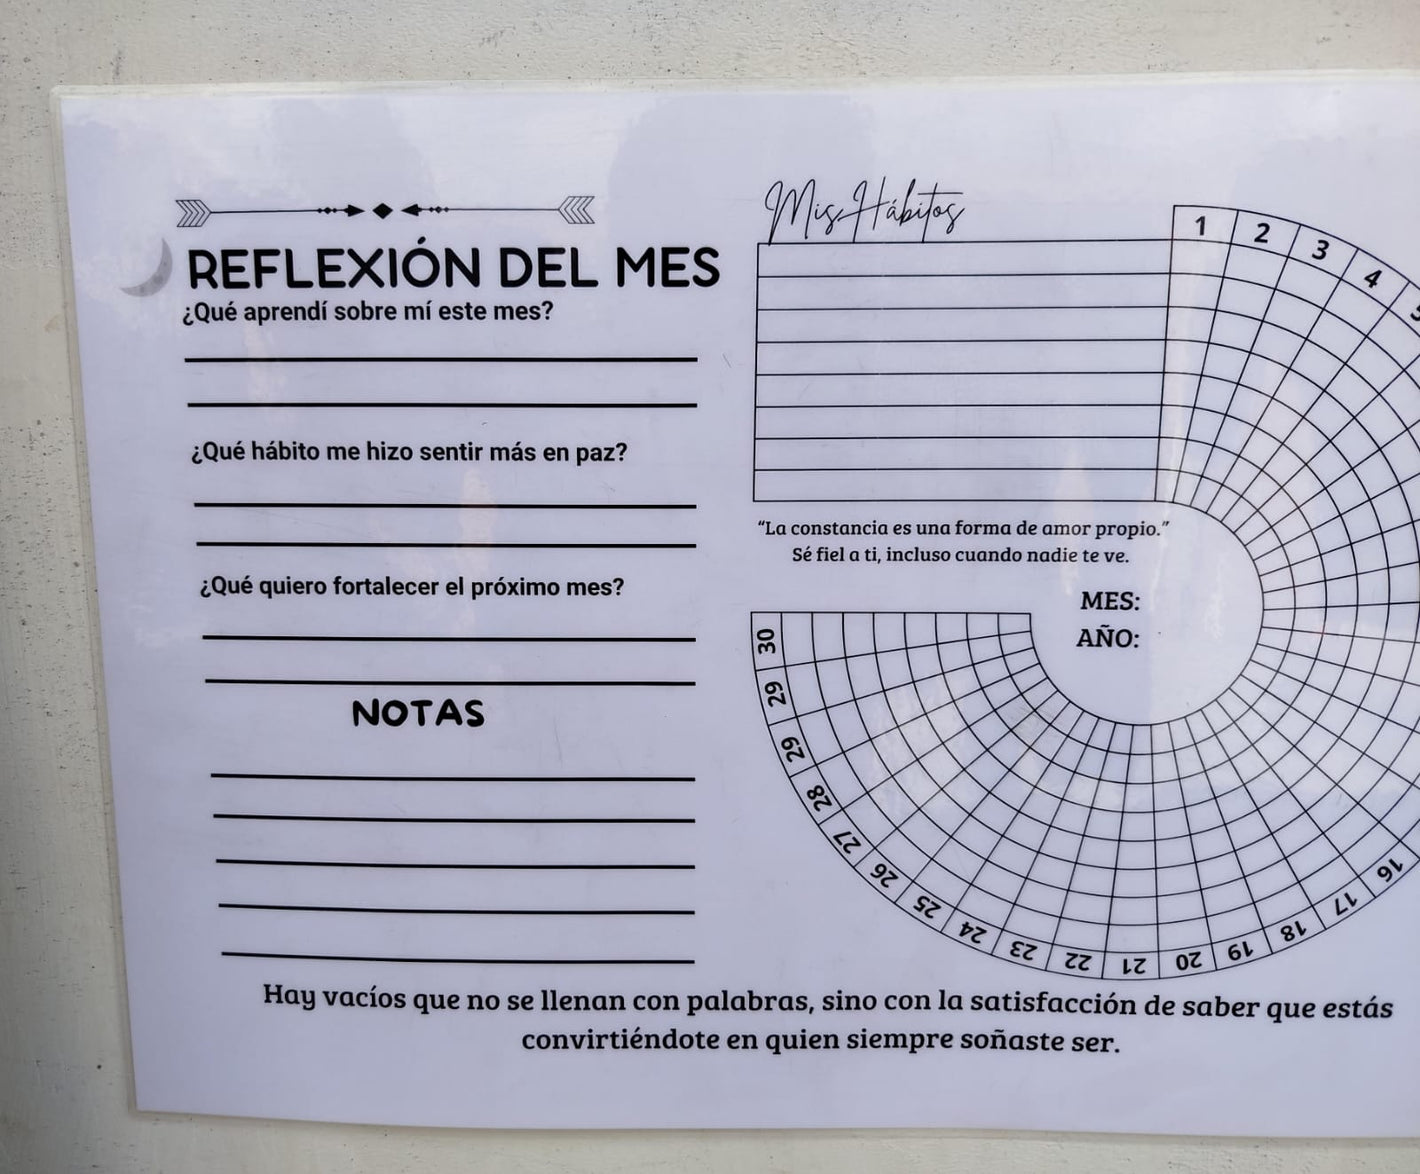 REFLEXIÓN DEL MES
¿Qué aprendí sobre mí este mes?
¿Qué hábito me hizo sentir más en paz?
¿Qué quiero fortalecer el próximo mes?
NOTAS
Mis Hábitos
1 2 3 4 5
"La constancia es una forma de amor propio."
Sé fiel a ti, incluso cuando nadie te ve.
MES:
AÑO:
16
17
18
19
20
21
22
23
24
25
26
27
28
29
29
30
Hay vacíos que no se llenan con palabras, sino con la satisfacción de saber que estás
convirtiéndote en quien siempre soñaste ser.